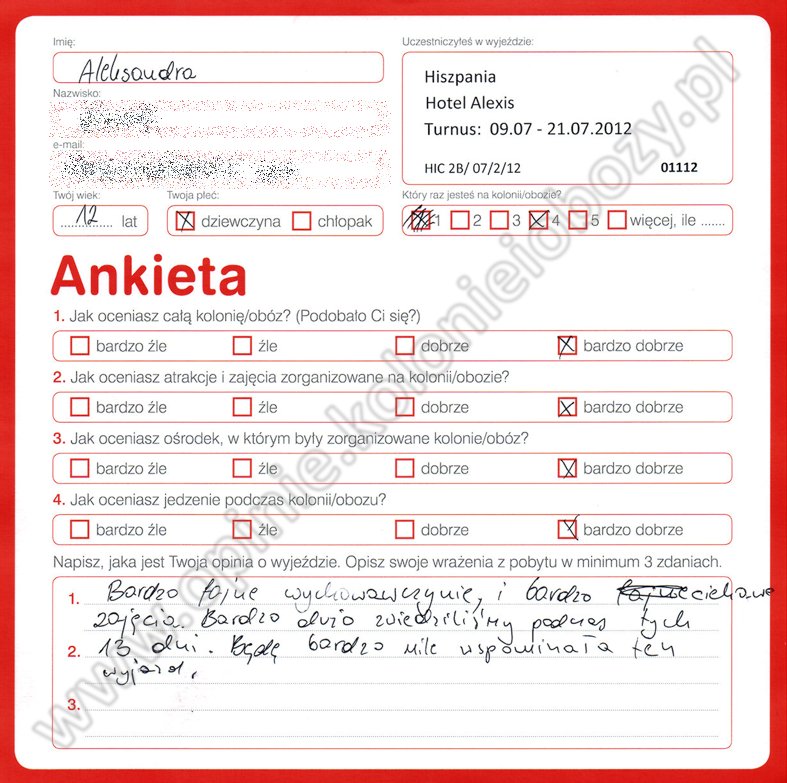 Imię:
Aleksandra
Uczestniczyłeś w wyjeździe:
Hiszpania
Hotel Alexis
Turnus: 09.07 - 21.07.2012
HIC 2B/ 07/2/12 01112
Nazwisko:
e-mail:
Twój wiek:
12 lat
Twoja płeć:
dziewczyna chłopak
Który raz jesteś na kolonii/obozie?
1 2 3 4 5 więcej, ile .......
Ankieta
1. Jak oceniasz całą kolonię/obóz? (Podobało Ci się?)
bardzo źle źle dobrze bardzo dobrze
2. Jak oceniasz atrakcje i zajęcia zorganizowane na kolonii/obozie?
bardzo źle źle dobrze bardzo dobrze
3. Jak oceniasz ośrodek, w którym były zorganizowane kolonie/obóz?
bardzo źle źle dobrze bardzo dobrze
4. Jak oceniasz jedzenie podczas kolonii/obozu?
bardzo źle źle dobrze bardzo dobrze
Napisz, jaka jest Twoja opinia o wyjeździe. Opisz swoje wrażenia z pobytu w minimum 3 zdaniach.
1. Bardzo fajne wychowawczynie, i bardzo ciekawe
zajęcia. Bardzo dużo zwiedziliśmy podczas tych
2. 13 dni. Będę bardzo mile wspominała ten
wyjazd.
3.
www.opinie.kolonieiobozy.pl